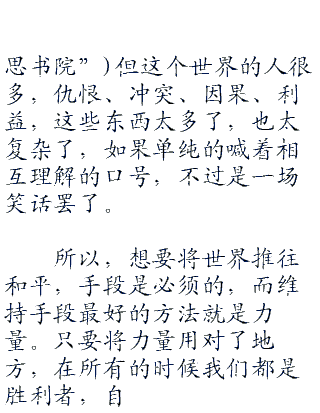 思书院”)但这个世界的人很
多，仇恨、冲突、因果、利
益，这些东西太多了，也太
复杂了，如果单纯的喊着相
互理解的口号，不过是一场
笑话罢了。
所以，想要将世界推往
和平，手段是必须的，而维
持手段最好的方法就是力
量。只要将力量用对了地
方，在所有的时候我们都是
胜利者，自